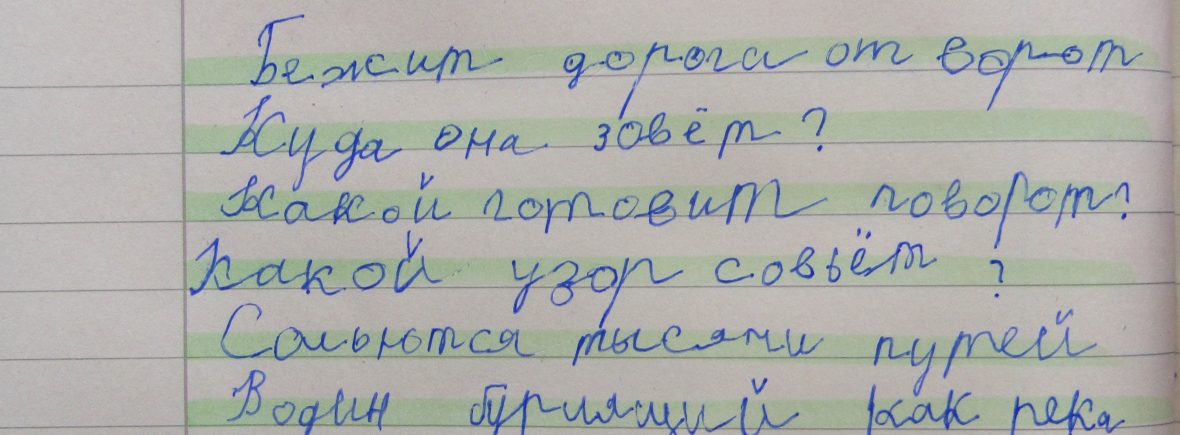 Бежит дорога от ворот
Куда она зовёт?
Какой готовит поворот?
Какой узор совьёт?
Сольются тысячи путей
В один бурлящий как река